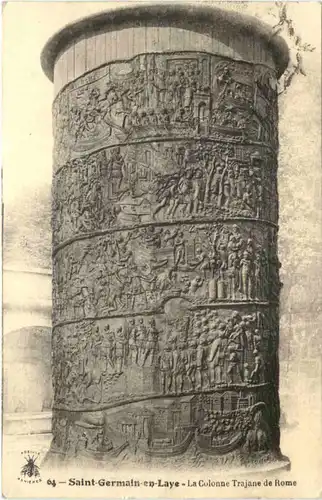 64 - Saint-Germain-en-Laye - La Colonne Trajane de Rome